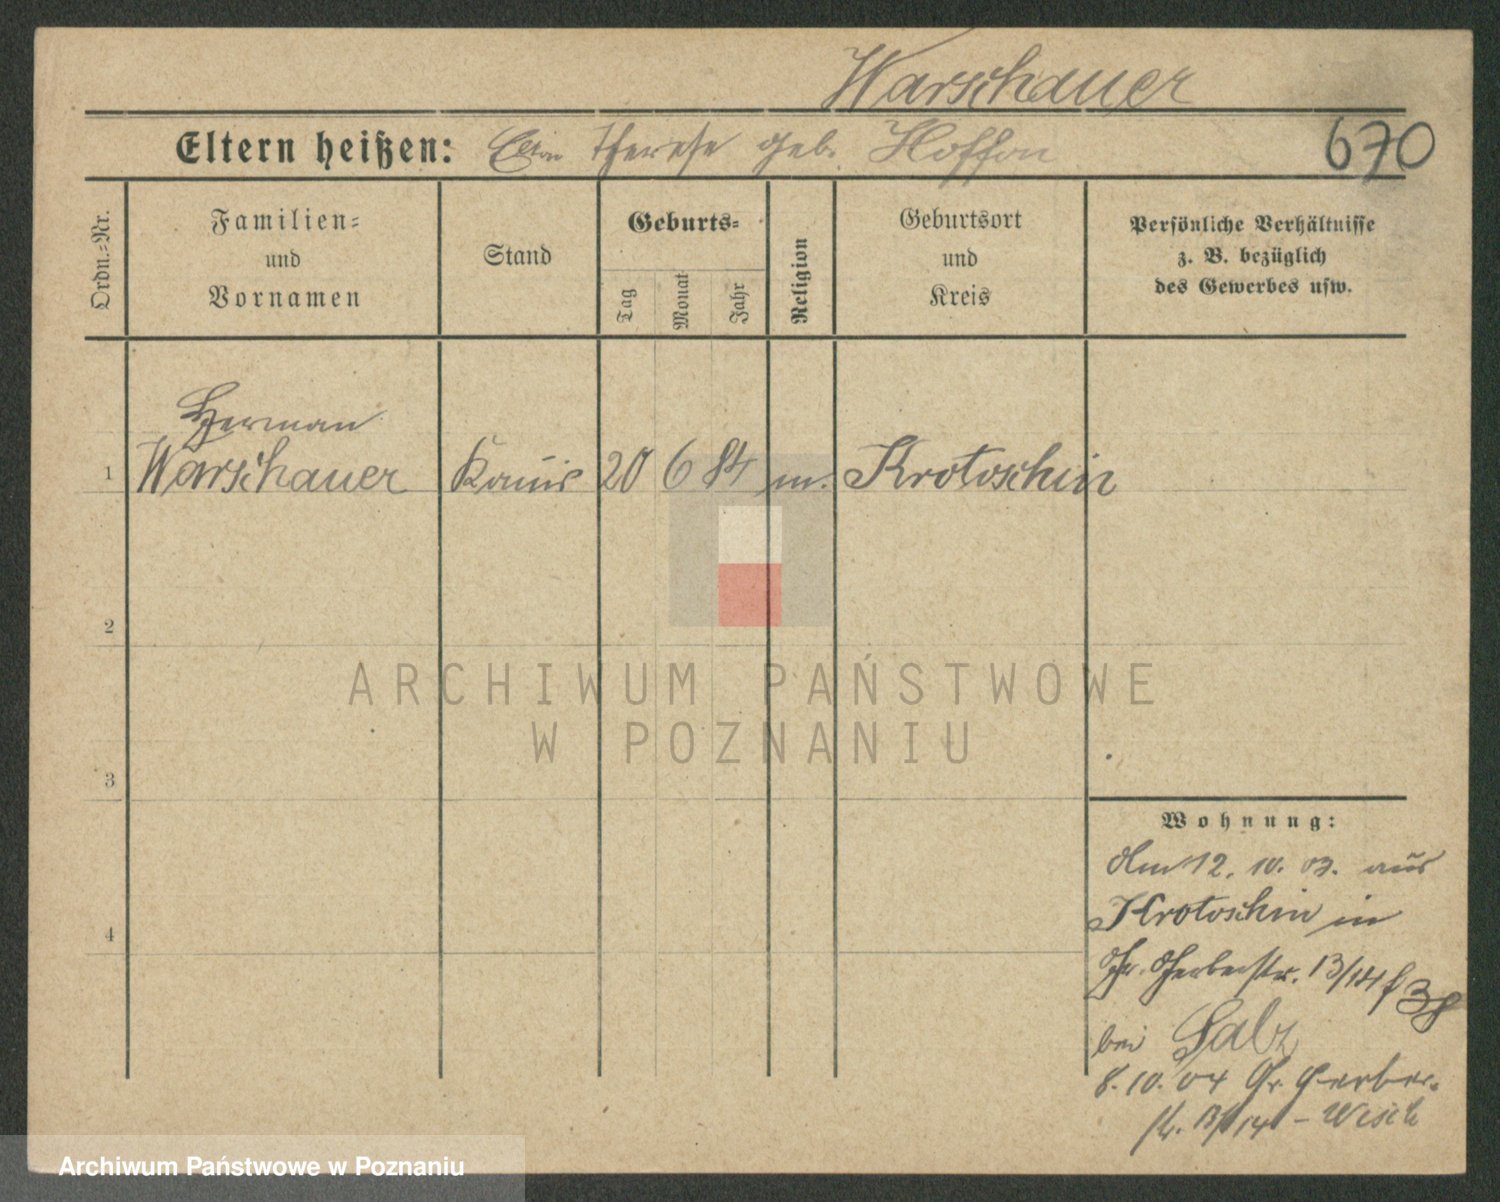 Warschauer
Eltern heißen: Therese geb. Hoffon
670
Ordn.-Nr.
Familien-
und
Vornamen
Stand
Geburts-
Tag
Monat
Jahr
Religion
Geburtsort
und
Kreis
Persönliche Verhältnisse
z. B. bezüglich
des Gewerbes usw.
Herman
1 Warschauer 20 6 84 m. Krotoschin
2
3
4
Wohnung:
Am 12. 10. 03. aus
Krotoschin in
Gr. Gerberstr. 13/14
bei Salz
8. 10. 04 Gr. Gerber-
str. 13/14 -
ARCHIWUM PAŃSTWOWE
W POZNANIU
Archiwum Państwowe w Poznaniu